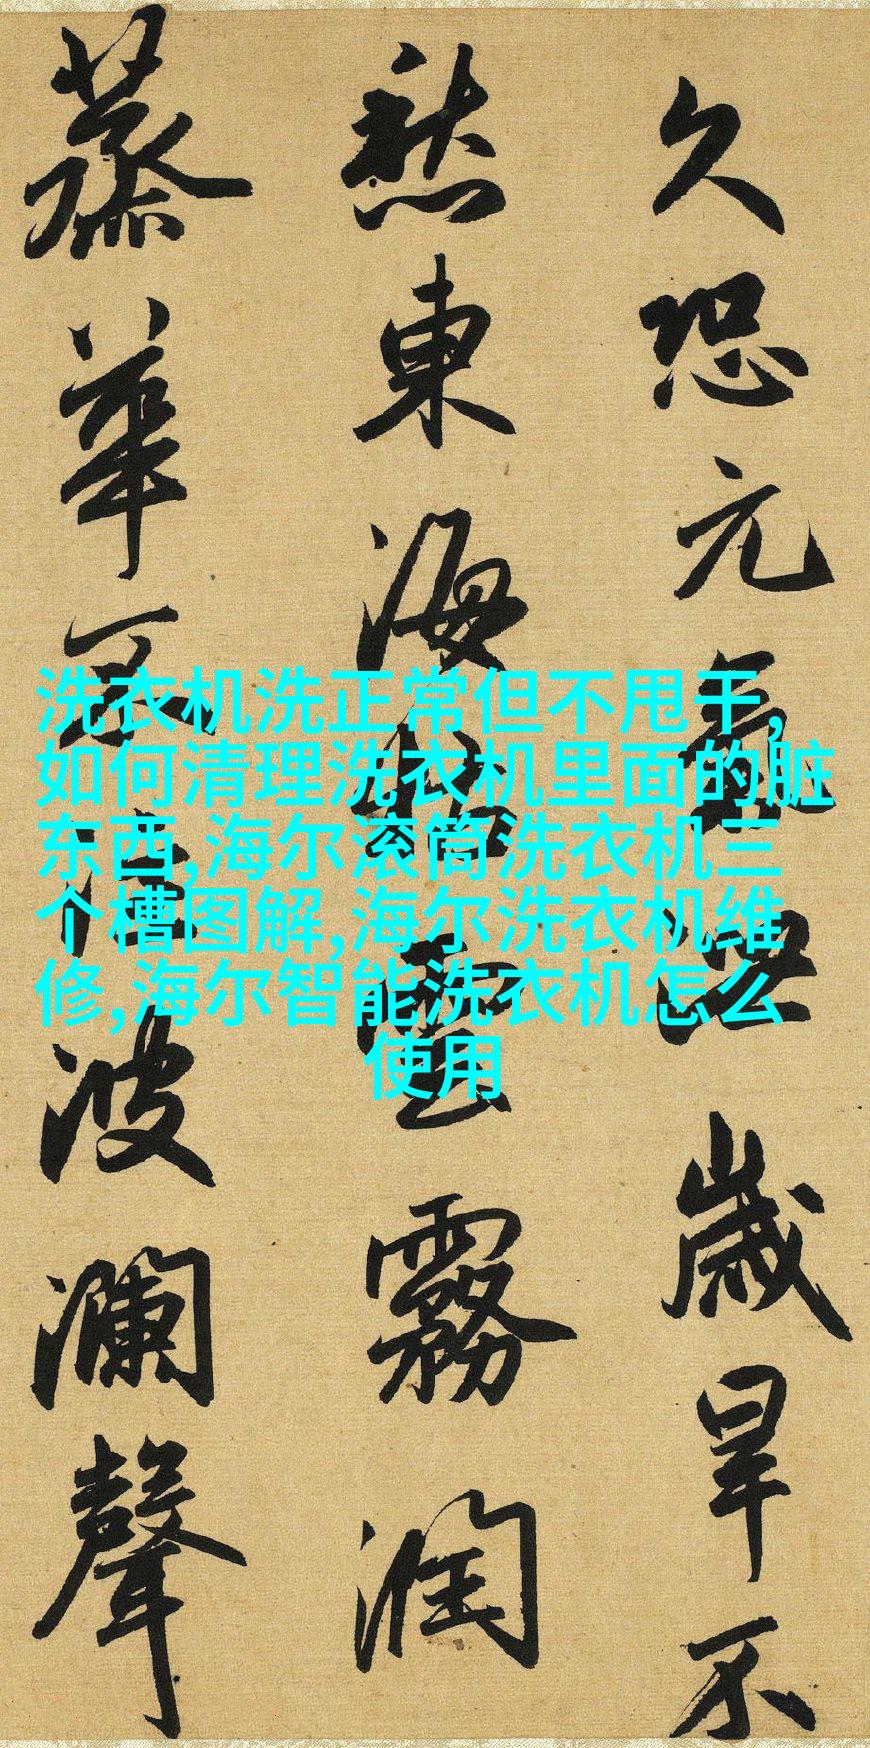 久恐元氣泄歲旱不
愁東海枯雲霧潤
蒸華不注波瀾聲
洗衣机洗正常但不甩干,
如何清理洗衣机里面的脏
东西,海尔滚筒洗衣机三
个槽图解,海尔洗衣机维
修,海尔智能洗衣机怎么
使用